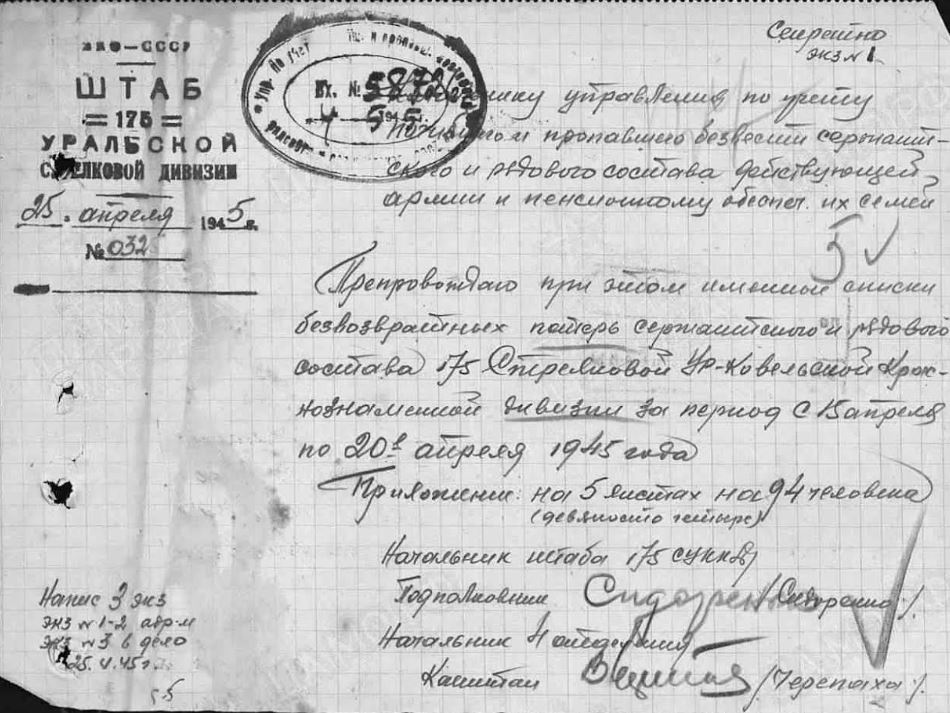 НКО-СССР
ШТАБ
175
УРАЛЬСКОЙ
СТРЕЛКОВОЙ ДИВИЗИИ
25. апреля 1945 г.
№ 032
Вх. № 5872
4 5 1945
Секретно
экз №1
управления по учету
погибшего и пропавшего безвести сержант-
ского и рядового состава действующей
армии и пенсионному обеспеч. их семей
5
Препровождаю при этом именные списки
безвозвратных потерь сержантского и рядового
состава 175 Стрелковой Ур-Ковельской Крас-
нознаменной дивизии за период с 15 апреля
по 20е апреля 1945 года
Приложение: на 5 листах на 94 человека
(девяносто четыре)
Начальник штаба 175 СУККД
Подполковник Сидоренко /Сидоренко/.
Начальник 4 отделения
Капитан /Черепаха/.
Напис 3 экз
экз №1-2 адр-м
экз №3 в дело
25.4.45г.